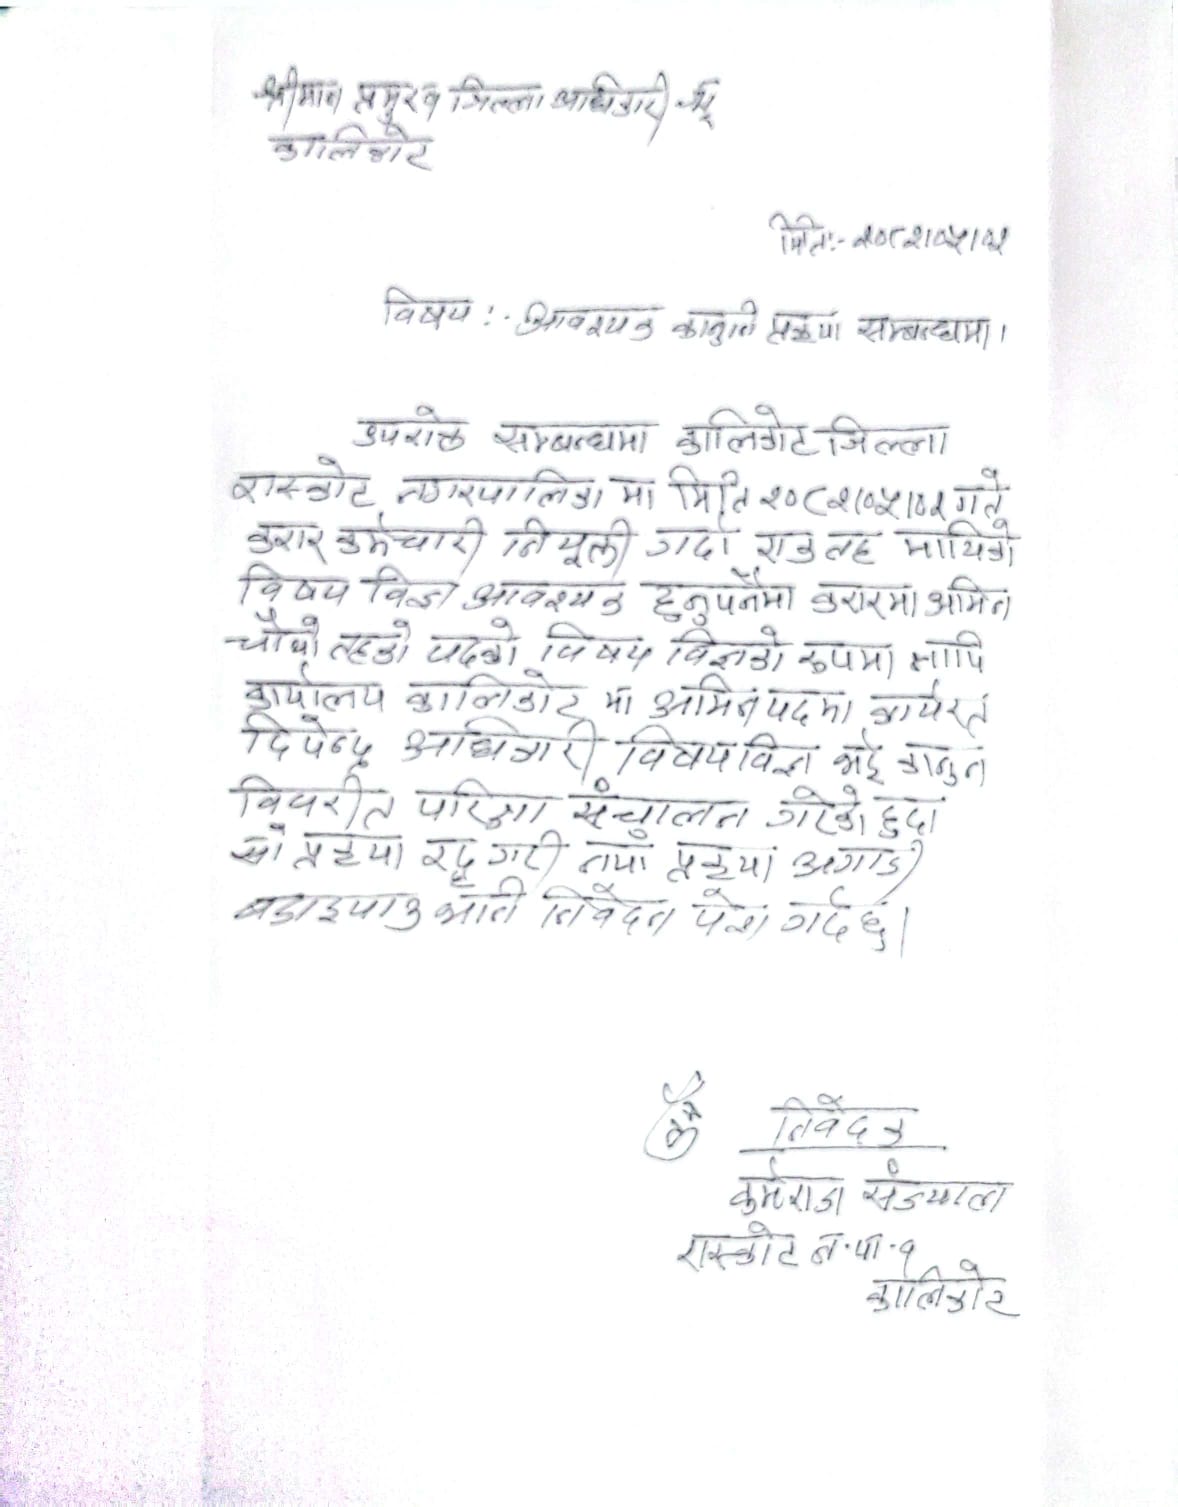 श्रीमान प्रमुख जिल्ला अधिकारी ज्यू
कालिकोट
मिति:- २०८२।०५।०२
विषय :- आवश्यक कानुनी प्रक्रया सम्बन्धमा।
उपरोक्त सम्बन्धमा कालिकोट जिल्ला
रास्कोट नगरपालिका मा मिति २०८२।०५।०२ गते
करार कर्मचारी नियूक्ती गर्दा एक तह माथिको
विषय विज्ञ आवश्यक हुनुपर्नेमा करारमा अमिन
चौथो तहको पदको विषय विज्ञको रूपमा नापि
कार्यालय कालिकोट मा अमिन पदमा कार्यरत
दिपेन्द्र अधिकारी विषयविज्ञ भई कानुन
विपरीत परिक्षा संचालन गरेको हुदा
सो प्रक्रया रद्द गरी नयाँ प्रक्रया अगाडी
बढाइपाउ भनि निवेदन पेश गर्दछु।
निवेदक
कर्मराज सँज्याल
रास्कोट न.पा.१
कालिकोट